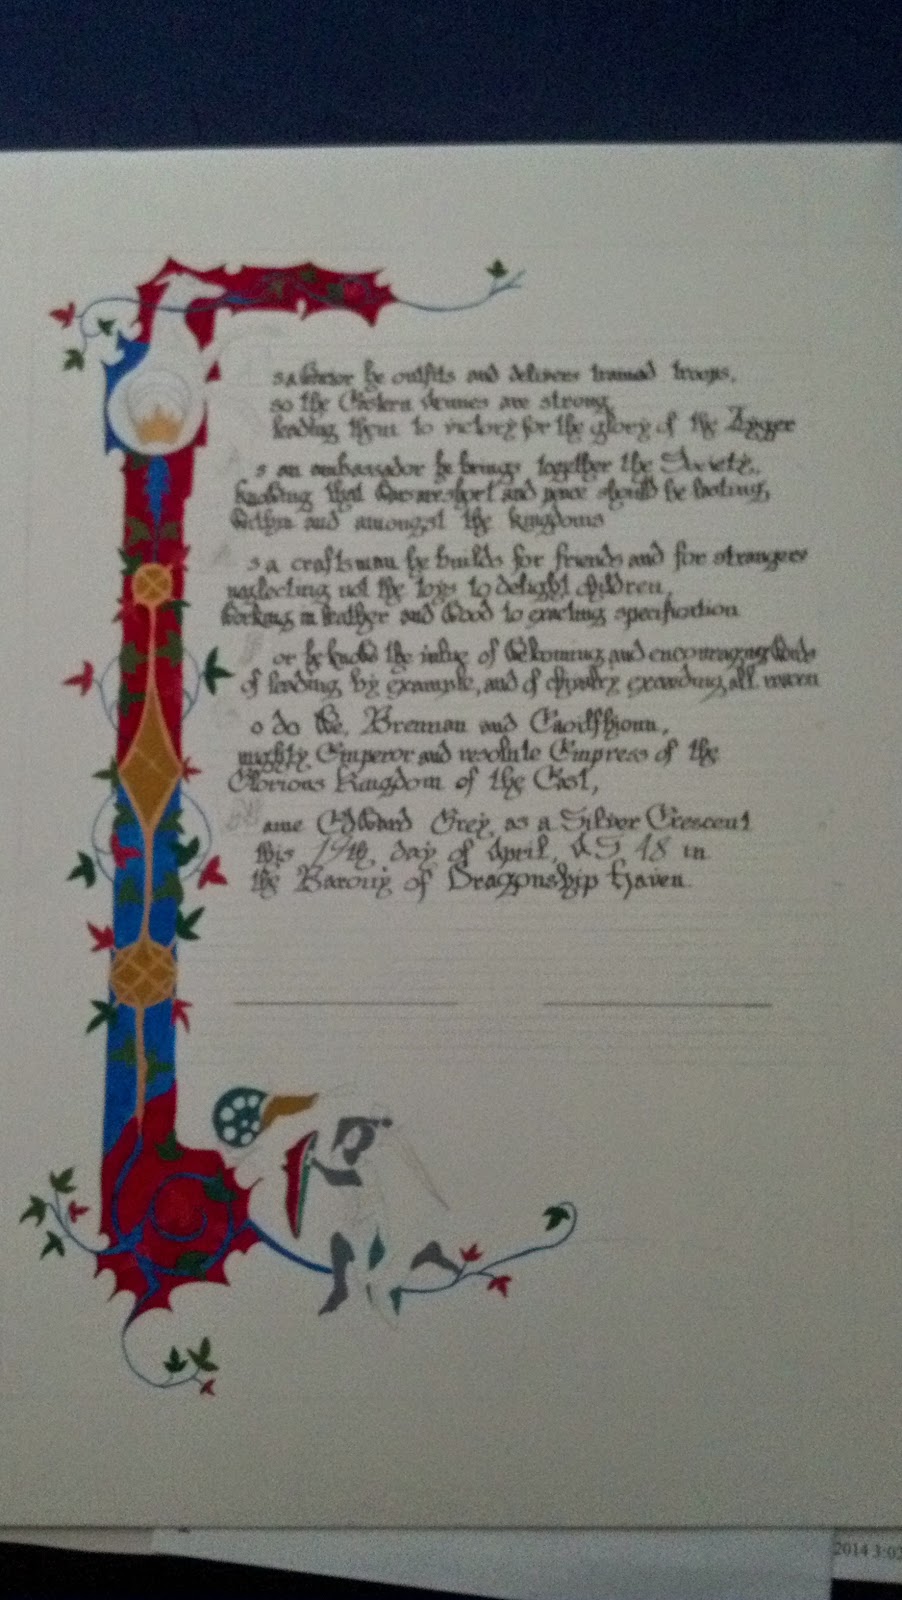 s a he outfits and delivers trained troops,
so the Eastern armies are strong,
leading them to victory for the glory of the Tygger
s an ambassador he brings together the Society,
knowing that wars are short and peace should be lasting,
Within and amongst the kingdoms
s a craftsman he builds for friends and for strangers
neglecting not the toys to delight children,
Working in leather and Wood to exacting specification
or he knows the value of Welcoming and encouraging Words
of leading by example, and of chivalry exceeding all
o do We, Brennan and Caoilfhionn,
mighty Emperor and resolute Empress of the
Glorious Kingdom of the East,
ame Edward Grey as a Silver Crescent
this 19th day of April, AS 48 in
the Barony of Dragonship Haven.
2014 3:02